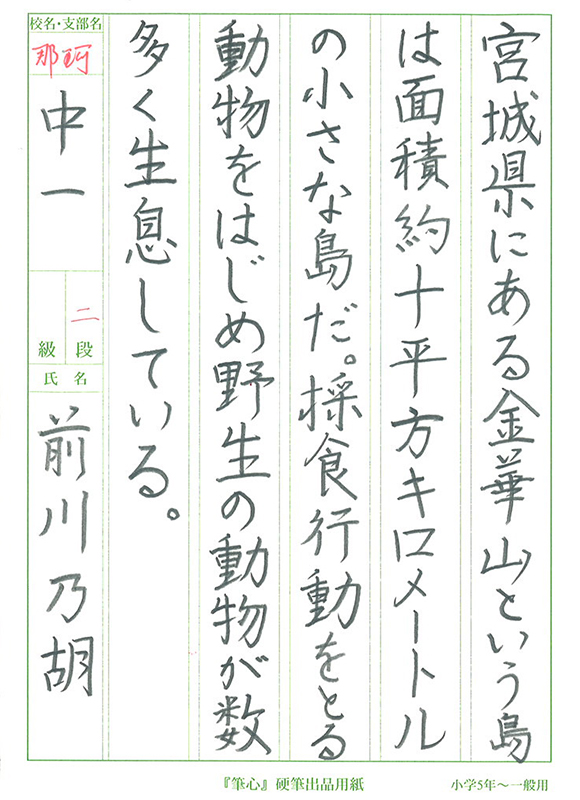 宮城県にある金華山という島
は面積約十平方キロメートル
の小さな島だ。採食行動をとる
動物をはじめ野生の動物が数
多く生息している。
校名・支部名
那珂
中一
二
段
級
氏名
前川乃胡
『筆心』硬筆出品用紙
小学5年〜一般用